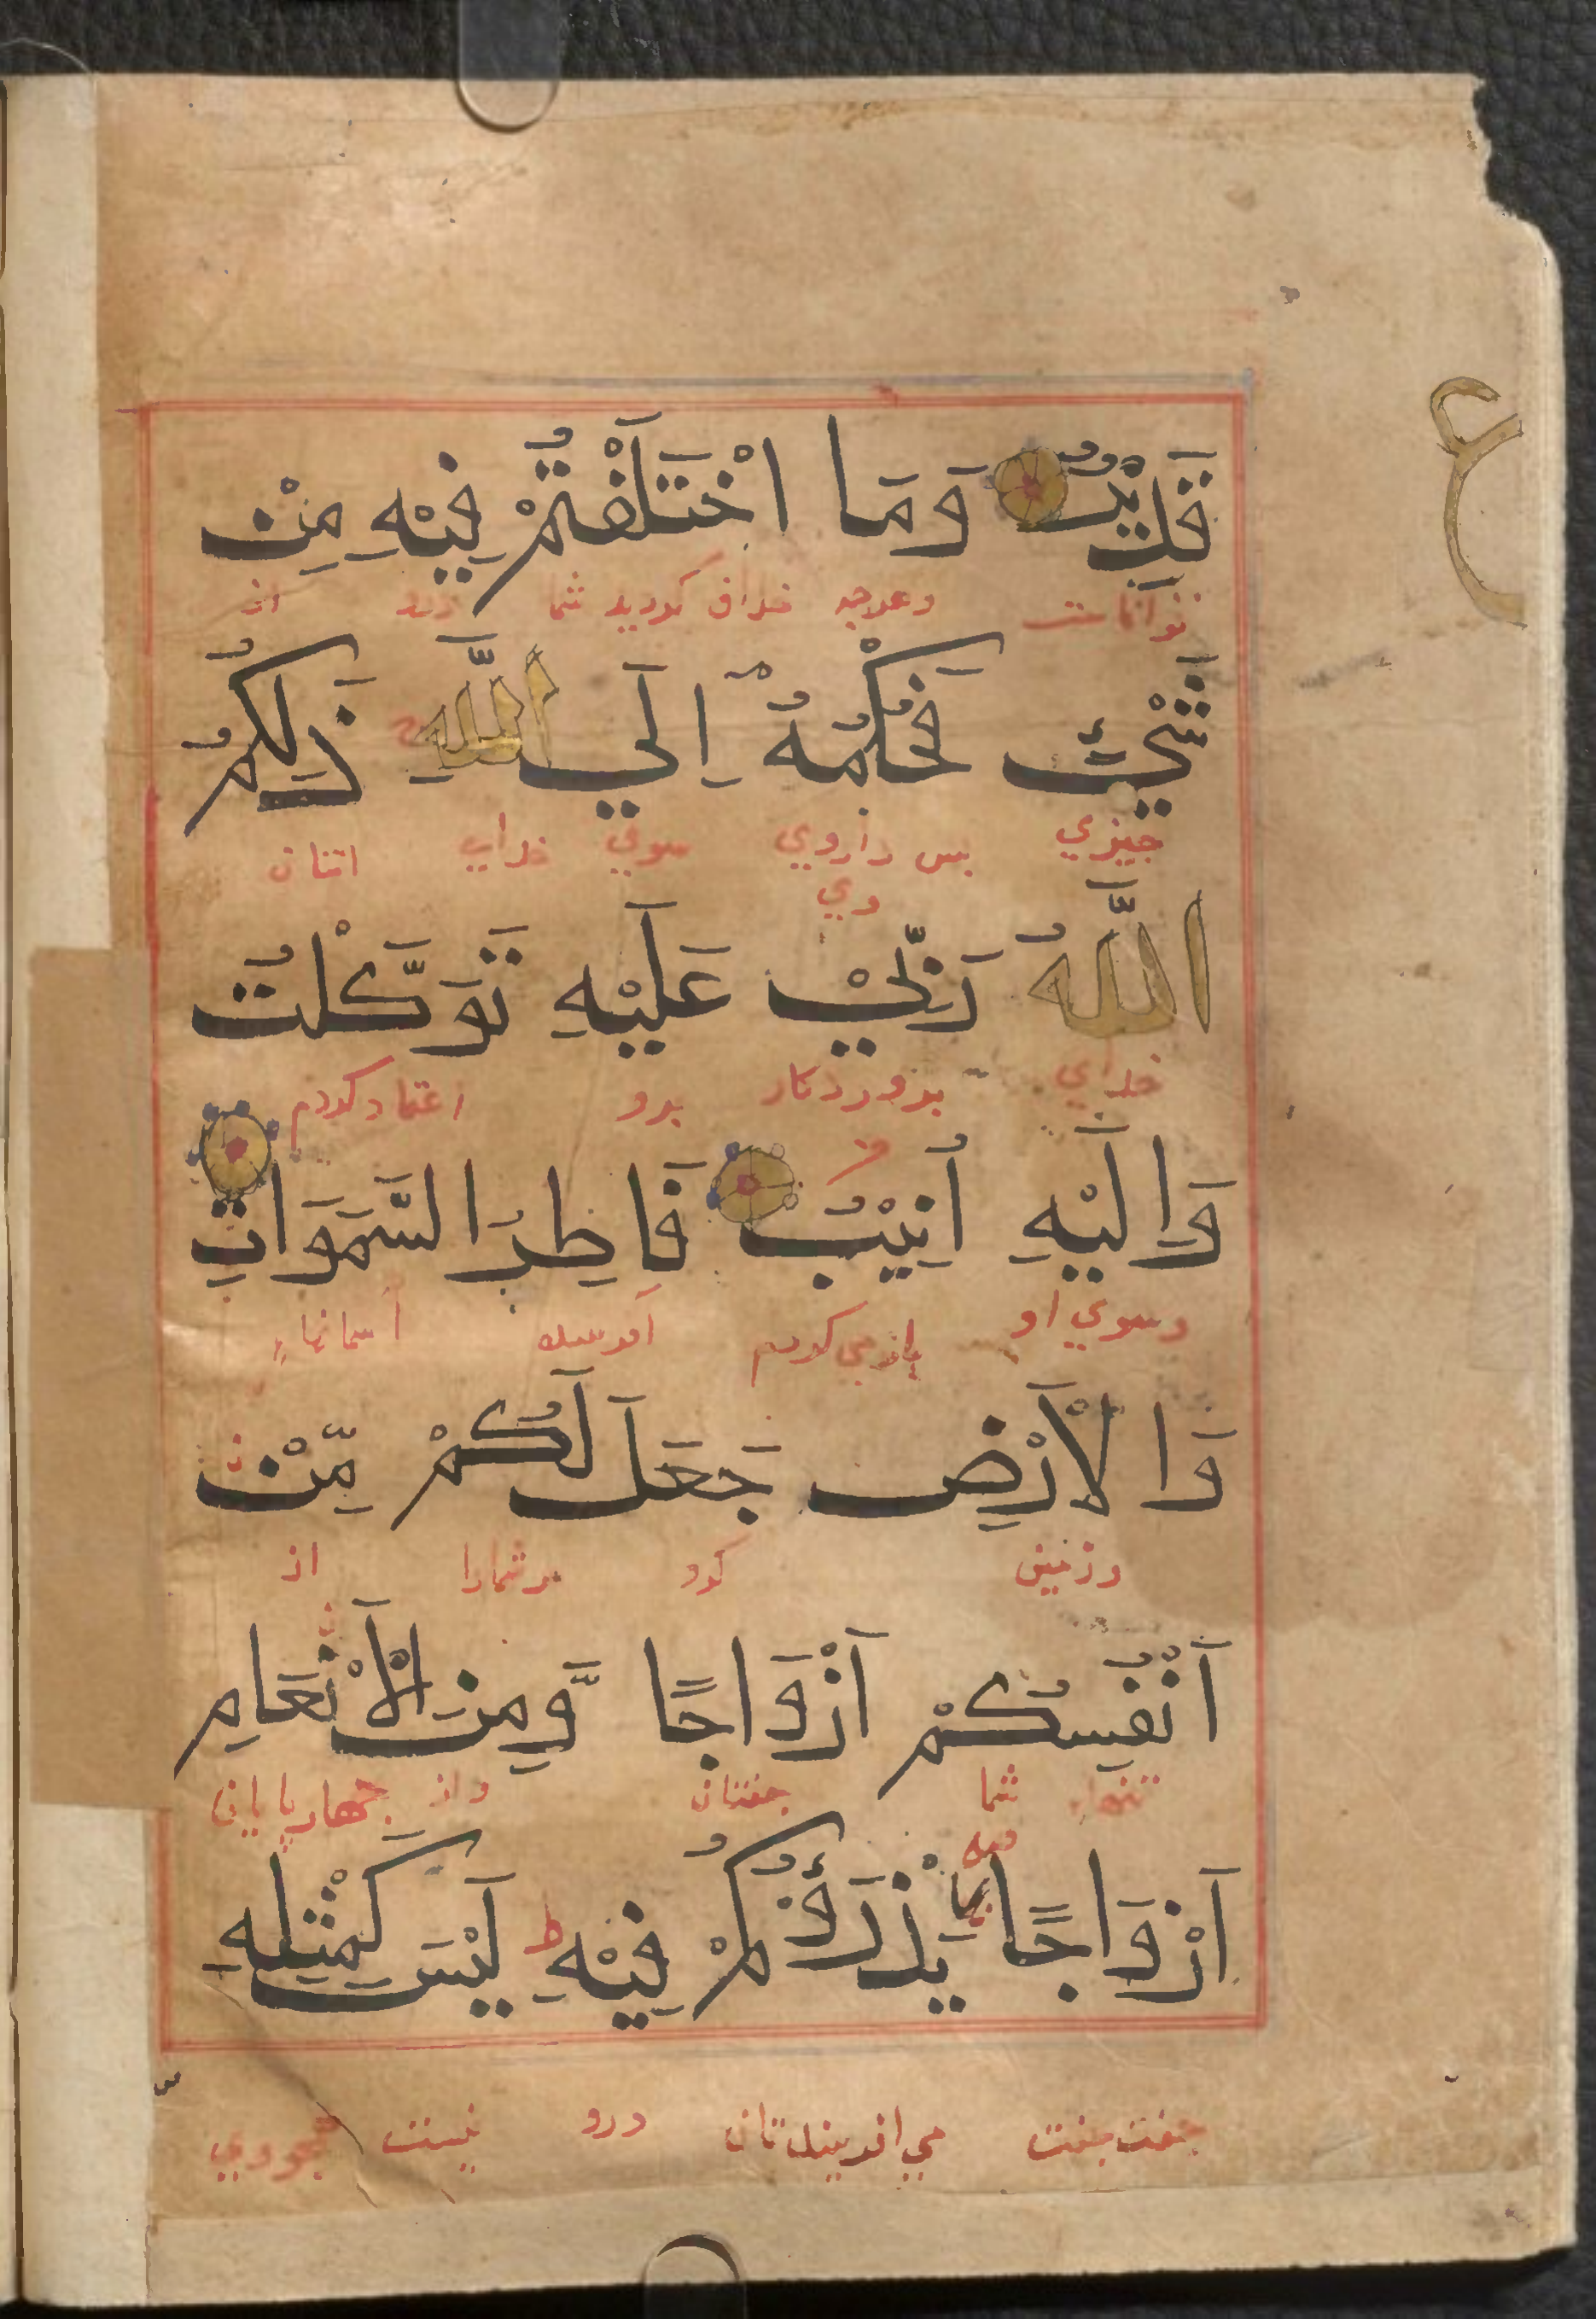 قَدِيْرٌ وَمَا اخْتَلَفْتُمْ فِيْهِ مِنْ
توانا ست وهرچه خلاف كرديد شما از
شَيْئٍ فَحُكْمُهٗ اِلَي اللّٰهِ ذٰلِكُمُ
چيزي پس داروي سوي خداي
وي
اللّٰهُ رَبِّيْ عَلَيْهِ تَوَكَّلْتُ
خداي پروردكار برو اعتماد كردم
وَاِلَيْهِ اُنِيْبُ فَاطِرُ السَّمَوَاتِ
وسوي او باز مي كردم آسمانهاء
وَالْاَرْضِ جَعَلَ لَكُمْ مِّنْ
وزمين كرد مر شمارا از
اَنْفُسِكُمْ اَزْوَاجًا وَّمِنَ الْاَنْعَامِ
تنهاء شما جفتان واز چهارپايان
اَزْوَاجًا يَذْرَؤُكُمْ فِيْهِ ط لَيْسَ كَمِثْلِهٖ
جفت جفت مي افريند تان درو نيست چو وي
ع